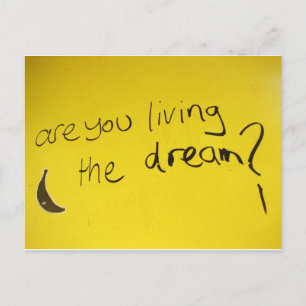 are you living
the dream?